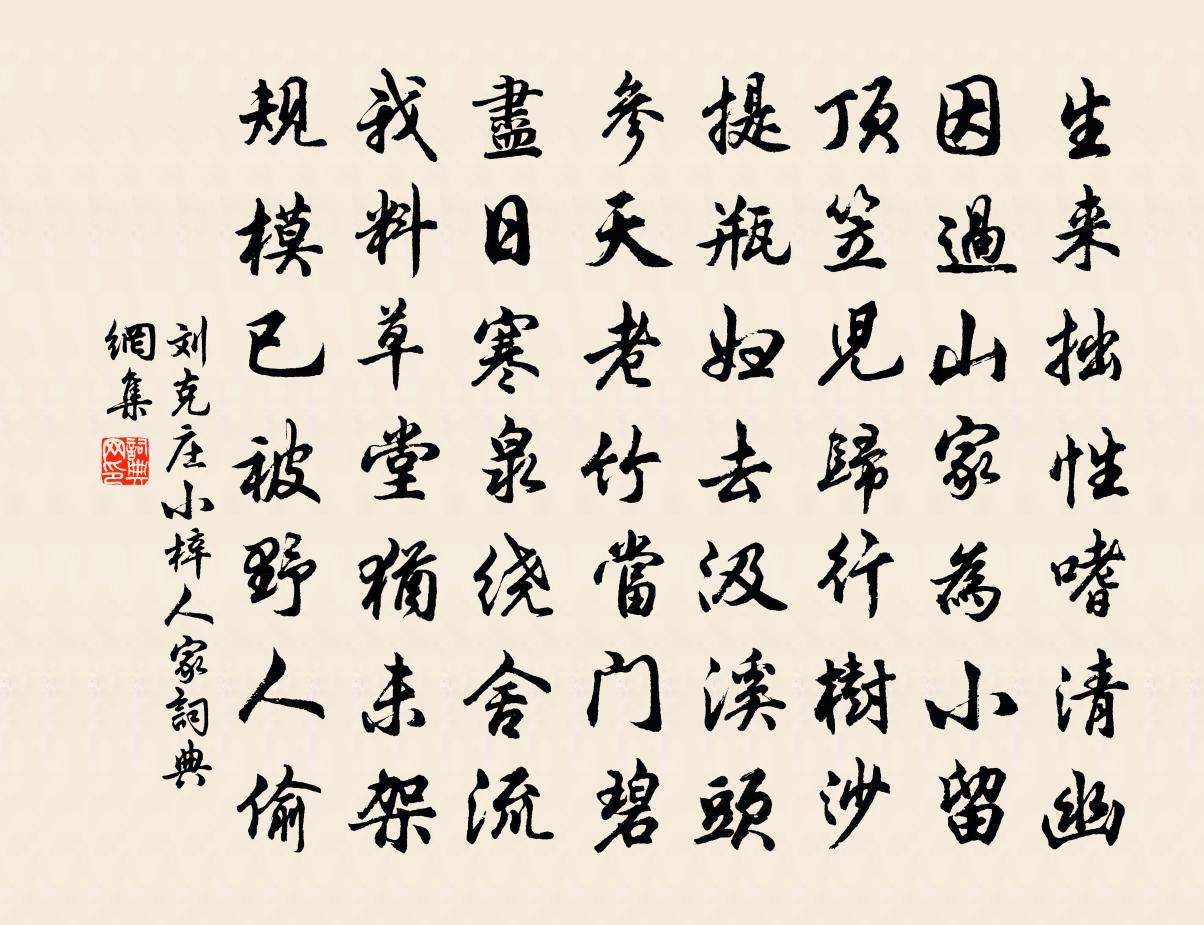 生来拙性嗜清幽
因過山家為小留
頂笠兒歸行樹沙
提瓶婦去汲溪頭
參天老竹當门碧
盡日寒泉绕舍流
我料草堂猶未架
規模已被野人偷
刘克庄小梓人家詞典
網集
詞典
网印